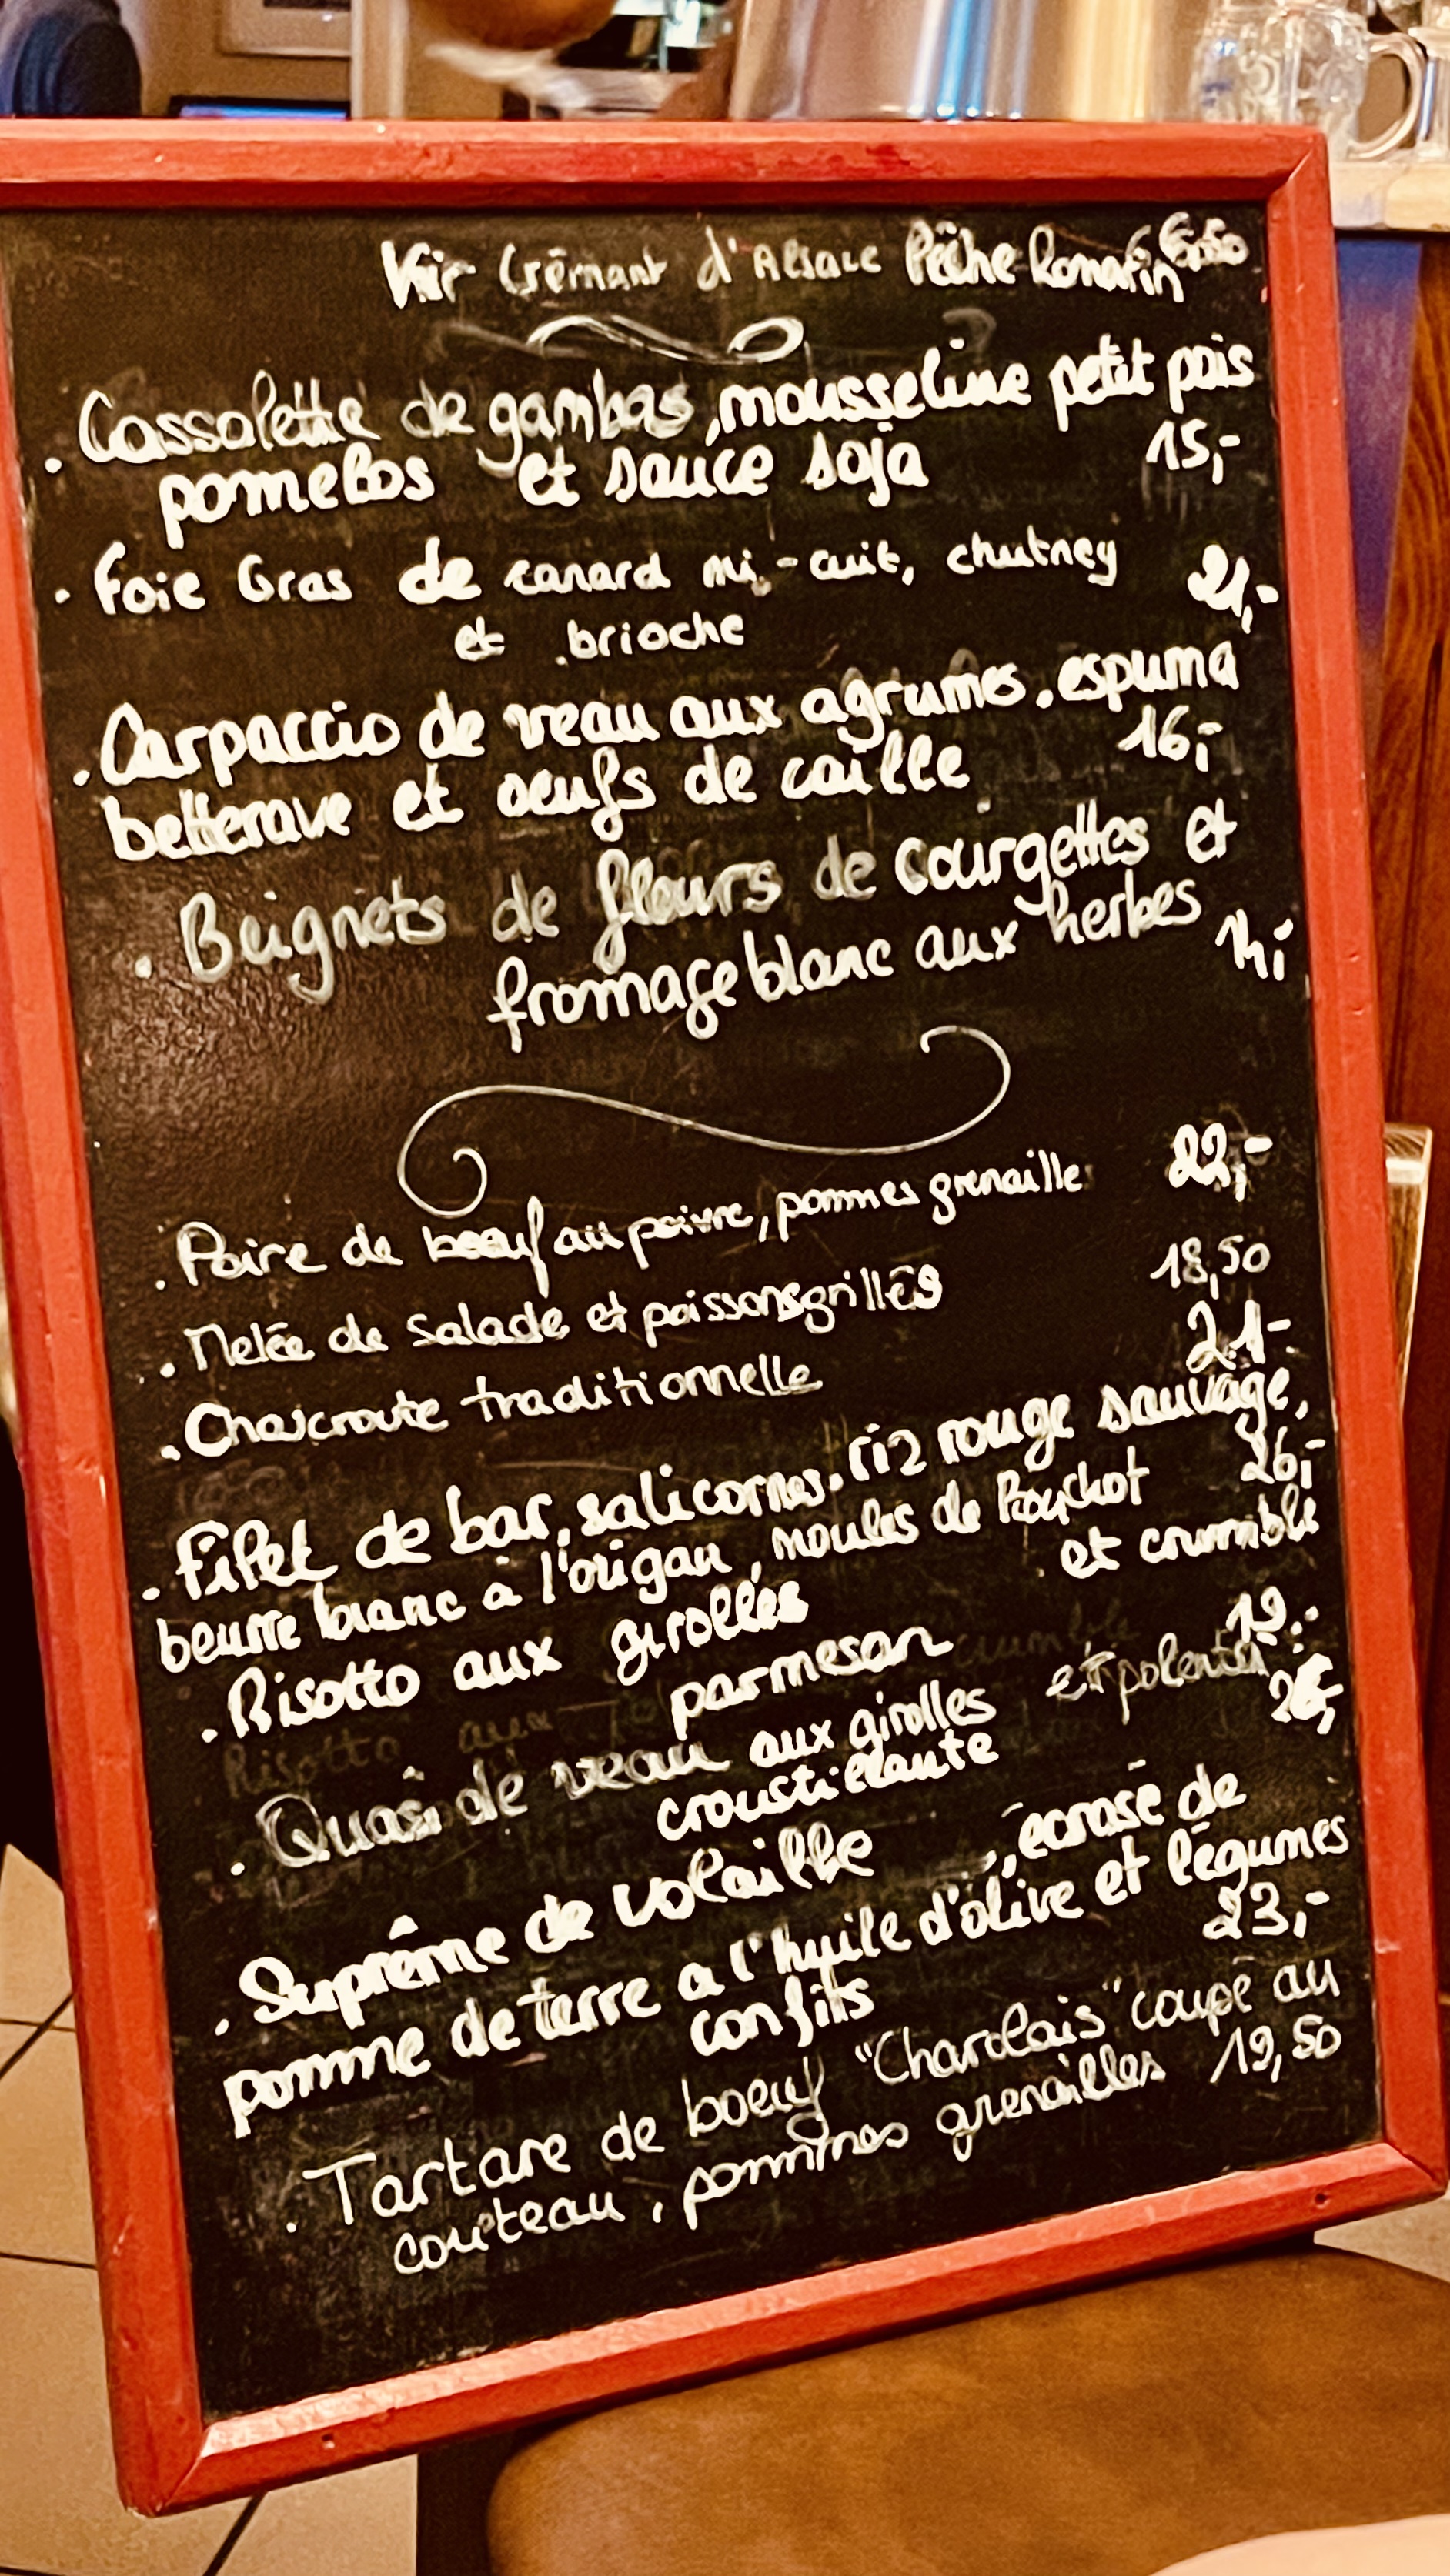 Kir Crémant d'Alsace Pêche Romarin
. Cassolette de gambas, mousseline petit pois
pomelos et sauce soja 15,-
. Foie Gras de canard mi-cuit, chutney 21,-
et brioche
. Carpaccio de veau aux agrumes, espuma
betterave et oeufs de caille 16,-
. Beignets de fleurs de courgettes et
fromage blanc aux herbes 14,-
. Poire de boeuf au poivre, pommes grenaille 22,-
. Melée de Salade et poissons grillés 18,50
. Choucroute traditionnelle 21-
. Filet de bar, salicornes, riz rouge sauvage,
beurre blanc à l'origan, moules de Bouchot 26,-
et crumble
. Risotto aux girolles 19,-
parmesan
. Quasi de veau aux girolles et polenta
croustillante
. Suprême de volaille , écrasé de
pomme de terre a l'huile d'olive et légumes
confits 23,-
. Tartare de boeuf "Charolais" coupé au
couteau, pommes grenailles 19,50